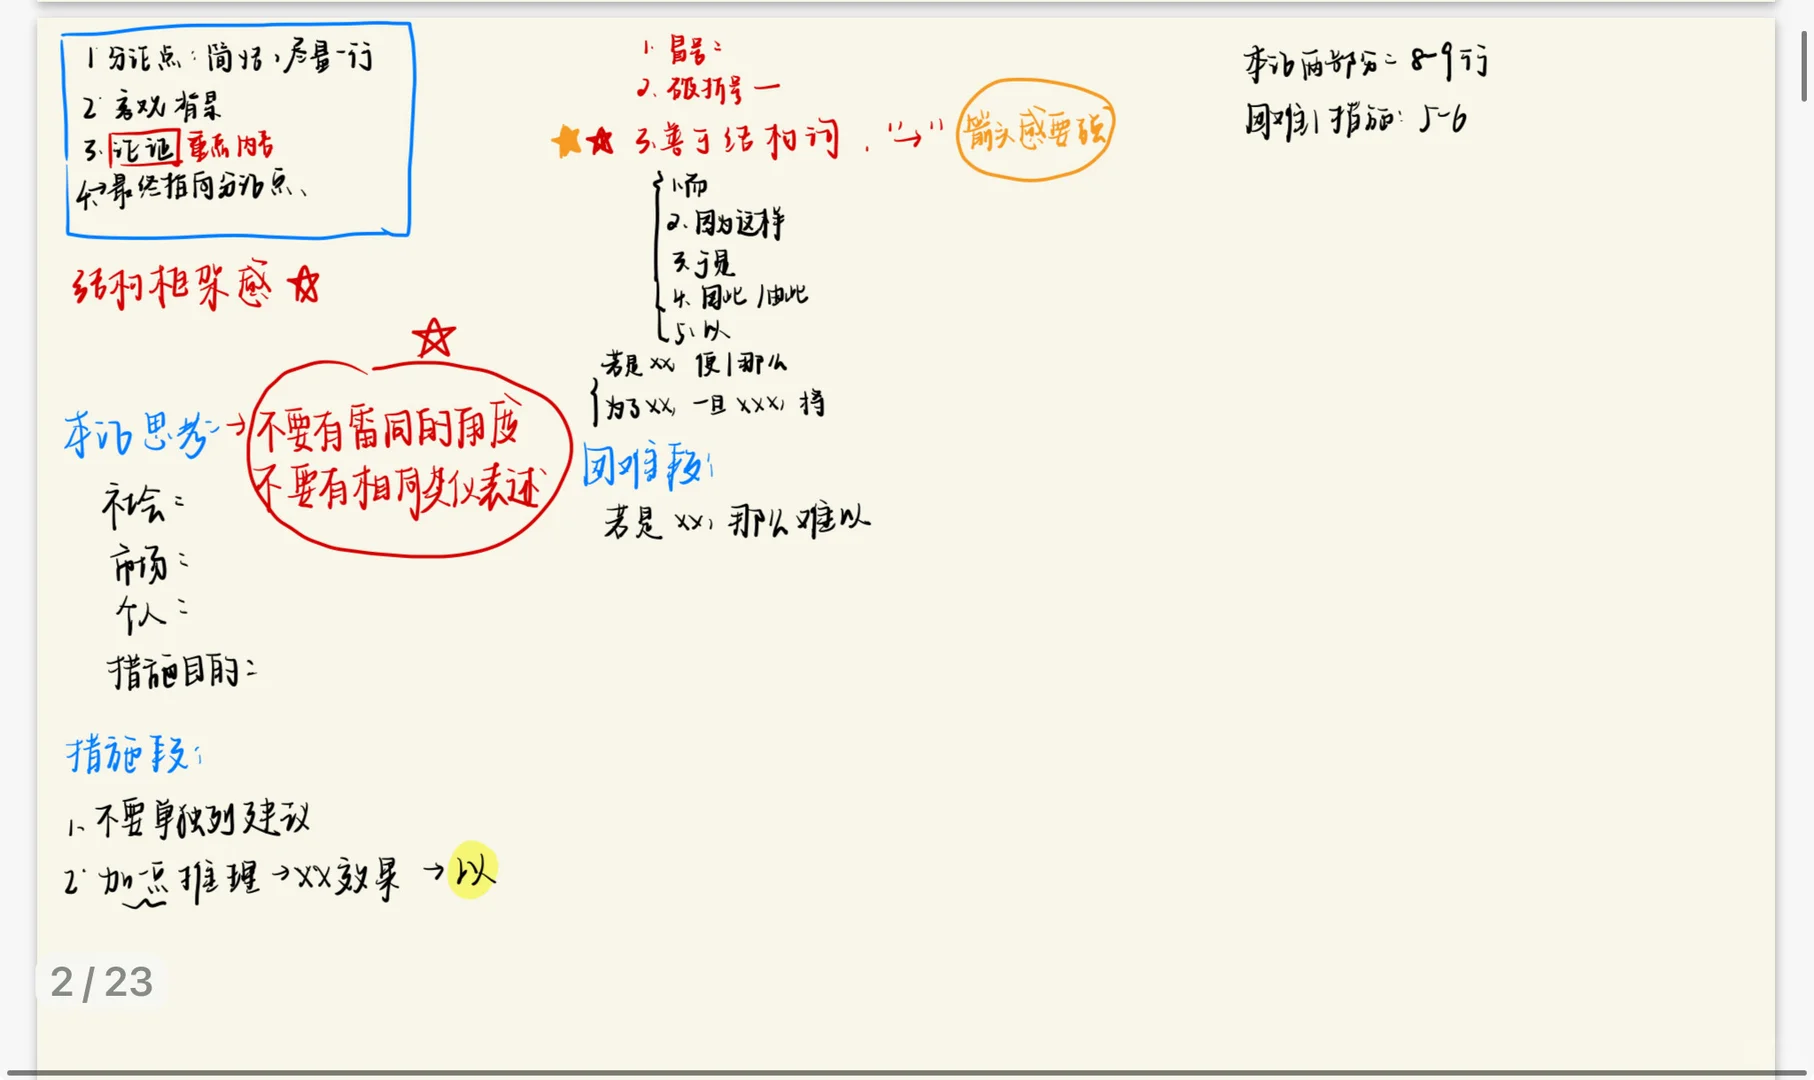 1 分论点：简洁，尽量一行
2. 客观背景
3. 论证 重点内容
4. →最终指向分论点、
结构框架感 ☆
本论思考：→ 不要有雷同的角度
不要有相同类似表述
社会：
市场：
个人：
措施目的：
措施段：
1、不要单独列建议
2. 加一点推理→XX效果 →以
1. 冒号：
2、破折号 —
★☆ 3.善于结构词，"→" 箭头感要强
1.而
2、因为这样
3、于是
4、因此/由此
5、以
若是xx，便|那么
为了XX，一旦XXX，将
困难段：
若是xx，那么难以
本论两部分：8-9行
困难|措施：5-6
2 / 23